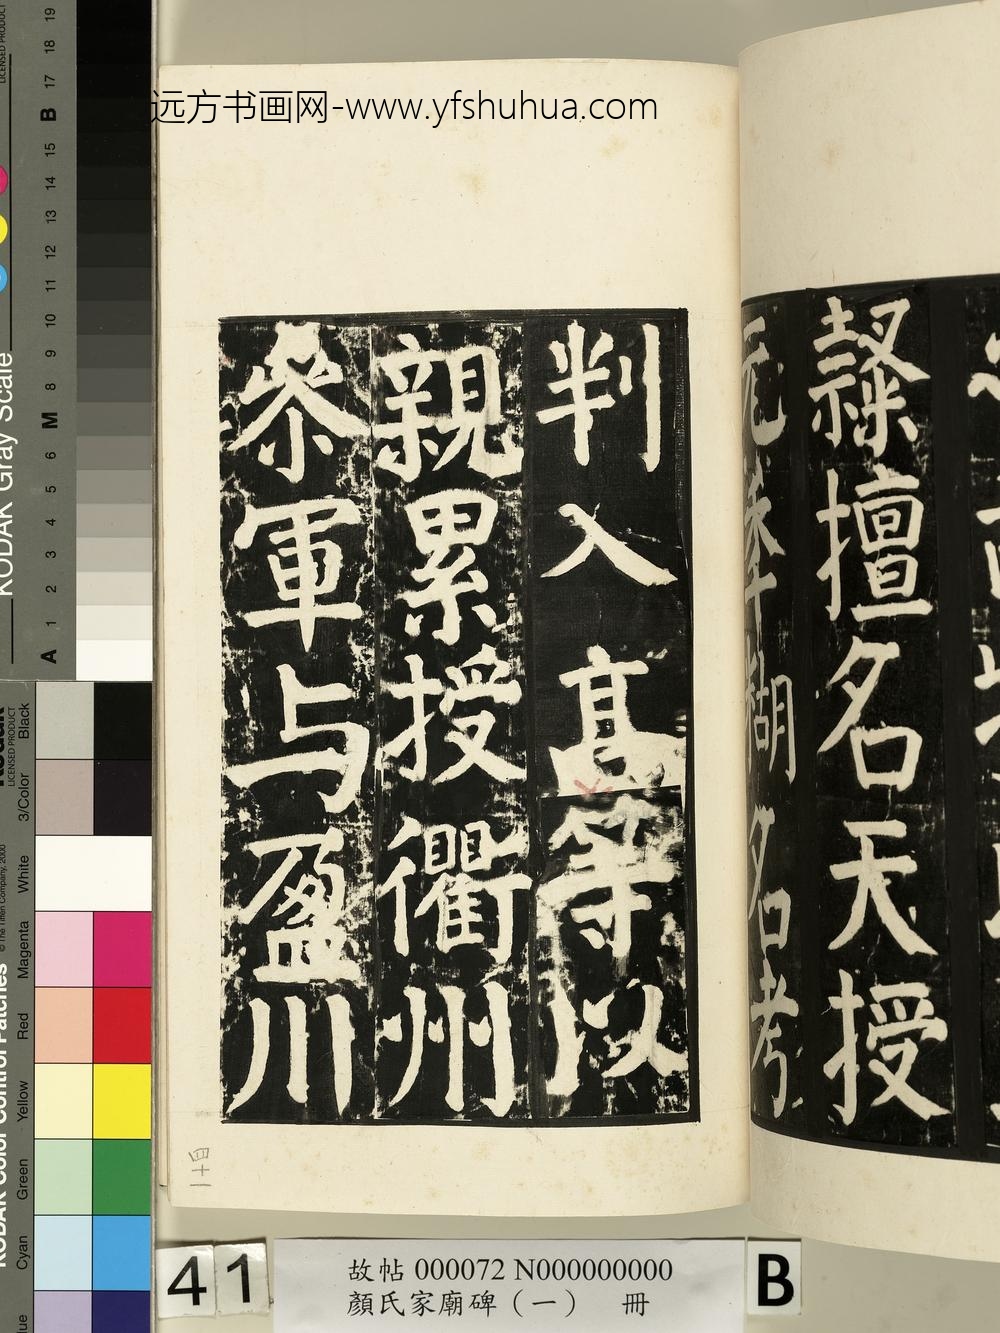 远方书画网-www.yfshuhua.com
隸擅名天授
糊名考
判入高等以
親累授衢州
參軍与盈川
四十一
41
故帖 000072 N000000000
顏氏家廟碑（一） 冊
B
KODAK Gray Scale
A 1 2 3 4 5 6 M 8 9 10 11 12 13 14 15 B 17 18 19
LICENSED PRODUCT
KODAK Color Control Patches
© The Tiffen Company, 2000
Kodak
LICENSED PRODUCT
Cyan
Green
Yellow
Red
Magenta
White
3/Color
Black